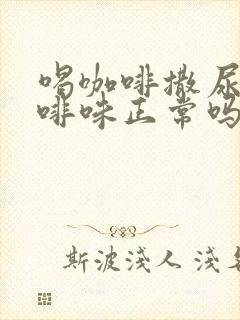 喝咖啡撒尿
啡味正常吗
斯波浅人 浅